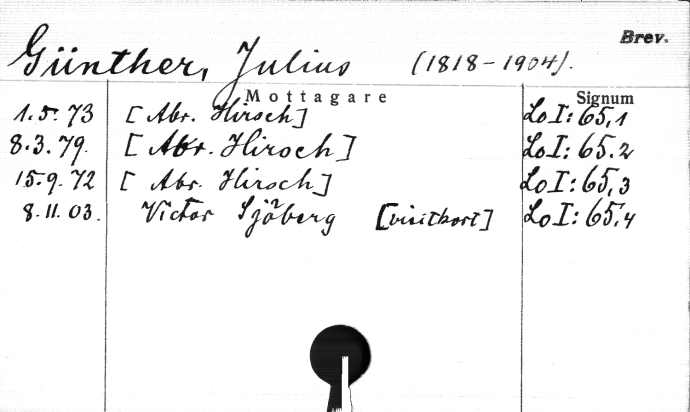 Brev.
Günther, Julius (1818-1904).
Mottagare Signum
1.5.73 [Abr. Hirsch] LoI:65,1
8.3.79. [Abr. Hirsch] LoI:65.2
15.9.72 [Abr. Hirsch] LoI:65,3
8.11.03. Victor Sjöberg [visitkort] LoI:65,4